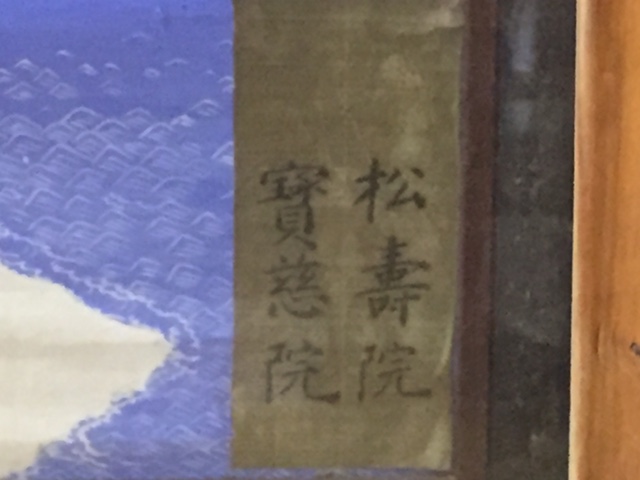 松壽院
寳慈院